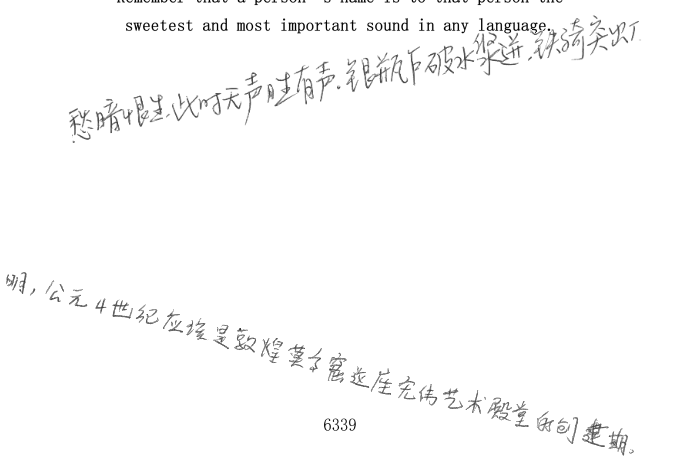 Remember that a person's name is to that person the
sweetest and most important sound in any language.
愁暗恨生,此时无声胜有声.银瓶乍破水浆迸,铁骑突出刀
明,公元4世纪应该是敦煌莫高窟这座宏伟艺术殿堂的创建期。
6339